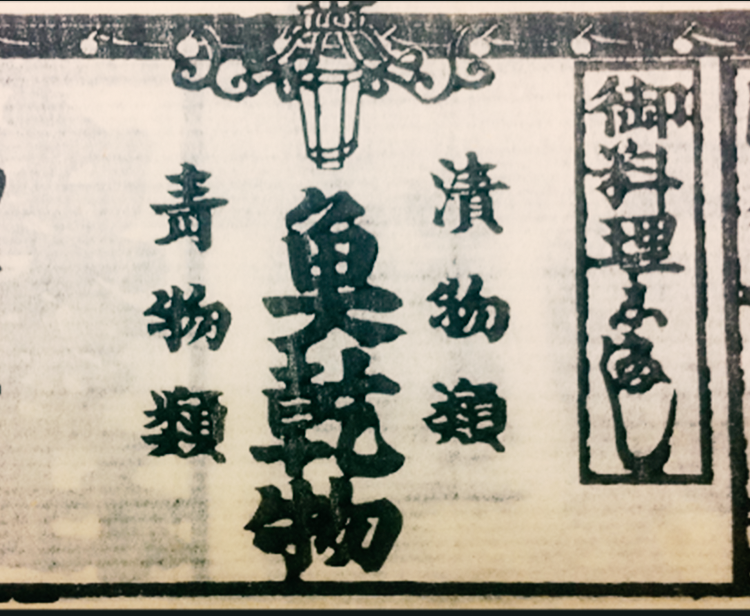 御料理
漬物類
魚乾物
青物類